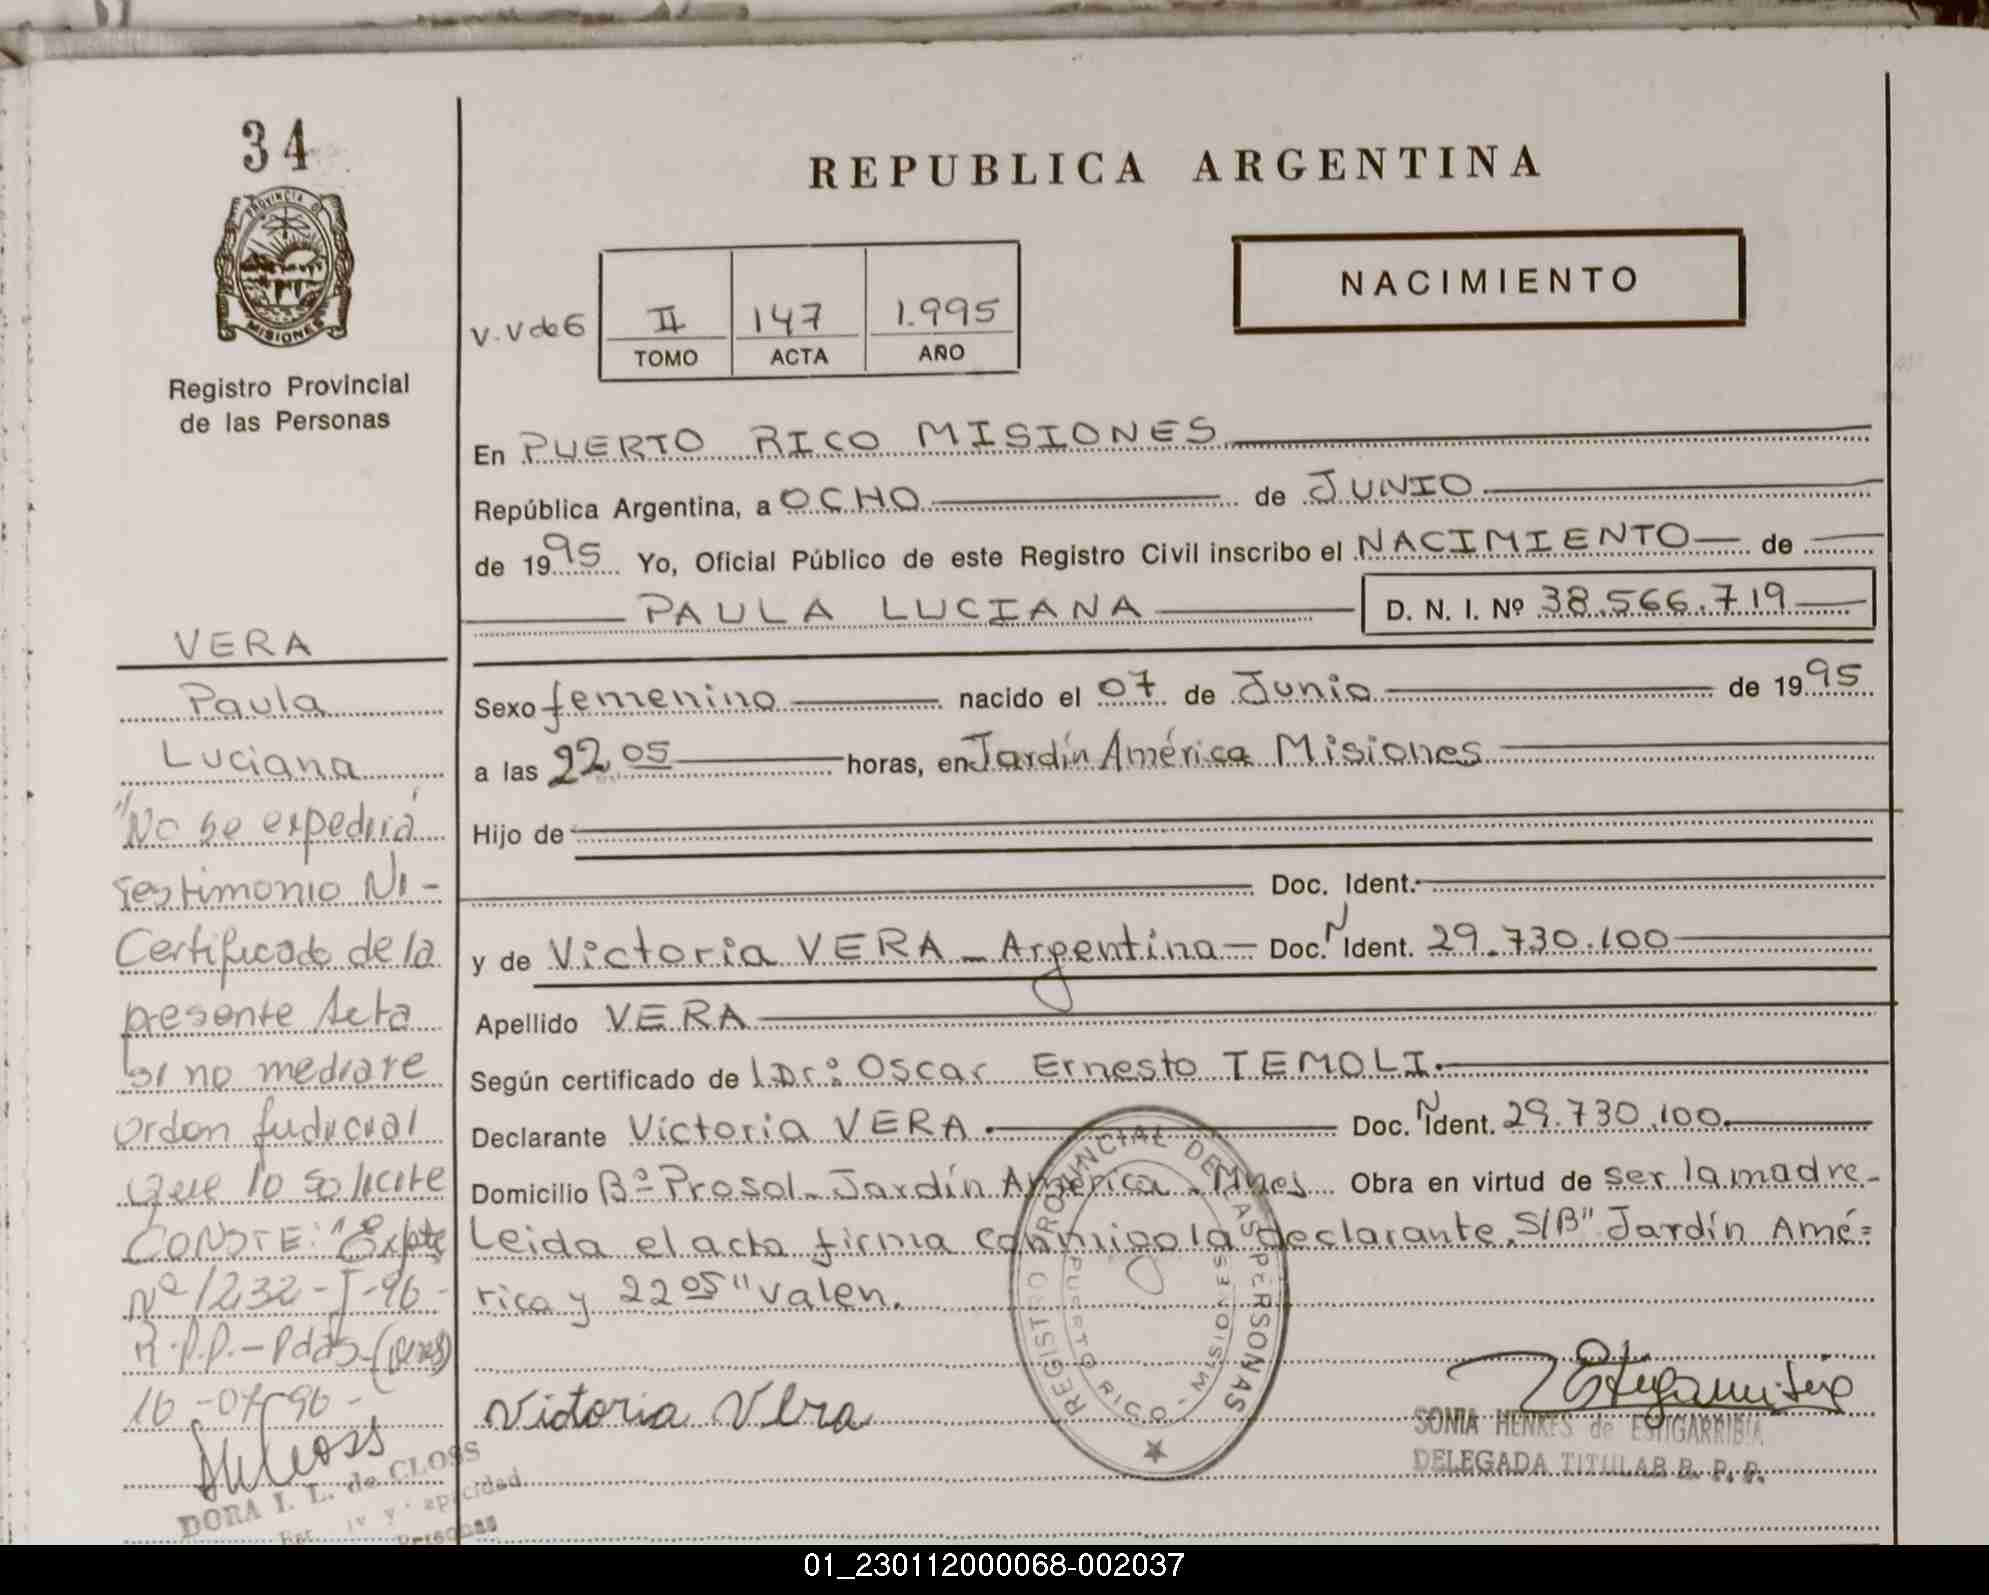 34
PROVINCIA D
MISIONES
Registro Provincial
de las Personas
VERA
Paula
Luciana
"No se expedirá
Testimonio Ni-
Certificado de la
presente Acta
si no mediare
orden Judicial
que lo solicite
CONSTE: "Expte
Nº 1232-I-96-
R.P.P.-Pdas-(Mnes)
16-07-96-
DORA I. L. de CLOSS
Personas
REPUBLICA ARGENTINA
NACIMIENTO
V.V de 6
II 147 1.995
TOMO ACTA AÑO
En PUERTO RICO MISIONES
República Argentina, a OCHO de JUNIO
de 1995 Yo, Oficial Público de este Registro Civil inscribo el NACIMIENTO de
PAULA LUCIANA D. N. I. Nº 38.566.719
Sexo femenino nacido el 07 de Junio de 1995
a las 22 05 horas, en Jardín América Misiones
Hijo de
Doc. Ident.
y de Victoria VERA - Argentina - Doc. N Ident. 29.730.100
Apellido VERA
Según certificado de Dr: Oscar Ernesto TEMOLI.
Declarante Victoria VERA. Doc. N Ident. 29.730.100
Domicilio Bº Prosol - Jardín América - Mnes Obra en virtud de ser la madre-
Leida el acta firma conmigo la declarante. S/B" Jardín Amé=
rica y 22 05" valen.
REGISTRO PROVINCIAL DE LAS PERSONAS
PUERTO RICO - MISIONES
Victoria Vera
SONIA HENKES de ESTIGARRIBIA
DELEGADA TITULAR R. P. P.
01_230112000068-002037